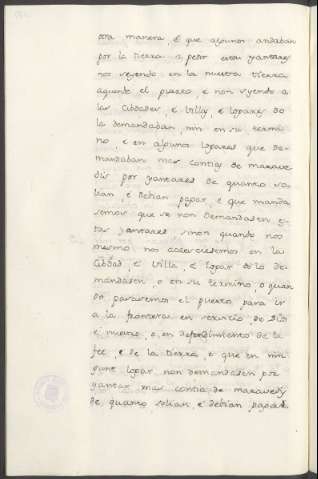 otra manera, é que algunos andaban
por la tierra a pedir estos yantares
nos seyendo en la nuestra tierra
aquende el puerto, e non viniendo a
las Cibdades, e Villas, e logares do
la demandaban, nin en su termi
no, e en algunos logares que de-
mandaban mas contia de marave-
dis por yantares de quanto so-
lian, e debian pagar, e que manda
semos que se non demandasen es-
tas yantares sinon quando nos
mesmo nos acaesciesemos en la
Cibdad, é Villa, é logar do lo de-
mandasen o en su termino, o quan
do pasaremos el puerto para ir
a la frontera en servicio de Dios
e nuestro, o en defendimiento de la
fee, e de la tierra, e que en nin
gunt logar non demandasen por
yantar mas contia de maravedis
de quanto solian, é debian pagar.